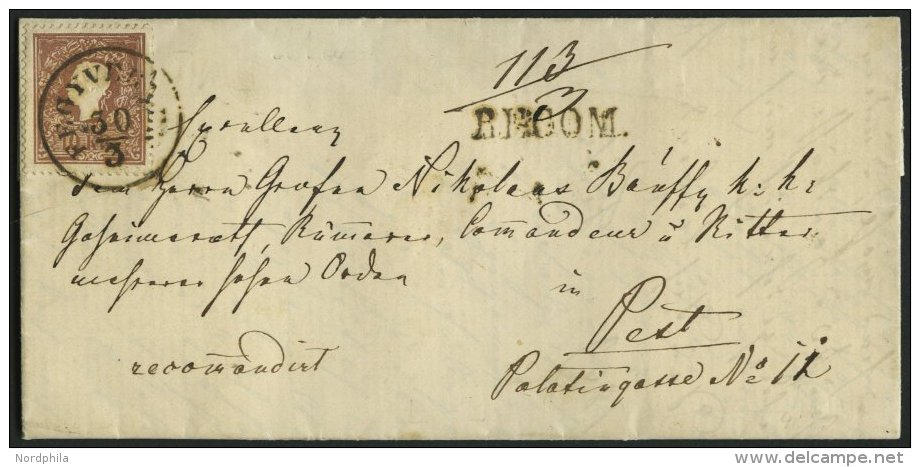 113
3
RECOM.
30
3
dem Herrn Grafen Nikolaus Bánffy k: k:
Geheimerath, Kämmerer, Commandeur u Ritter
mehrerer hohen Orden
in
Pest
recomandirt
Palatingasse No 11
Nordphila
delcampe.net